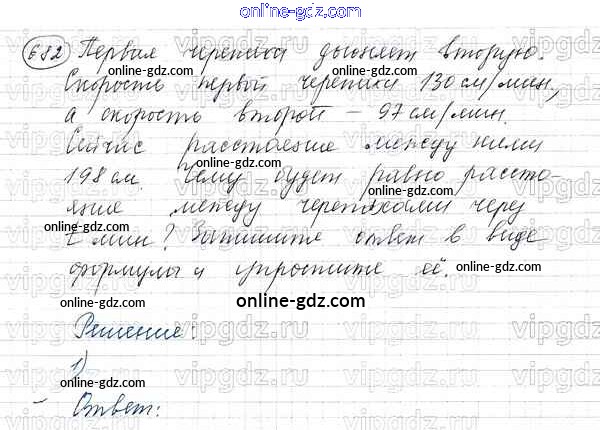 online-gdz.com
682 Первая черепаха догоняет вторую.
online-gdz.com
Скорость первой черепахи 130 см/мин.,
а скорость второй – 97 см/мин.
Сейчас расстояние между ними
online-gdz.com
198 см. Чему будет равно рассто-
online-gdz.com
яние между черепахами через
t мин? Запишите ответ в виде
online-gdz.com
формулы и упростите её.
online-gdz.com
Решение:
online-gdz.com
1)
online-gdz.com
– Ответ:
online-gdz.com
vipgdz.ru